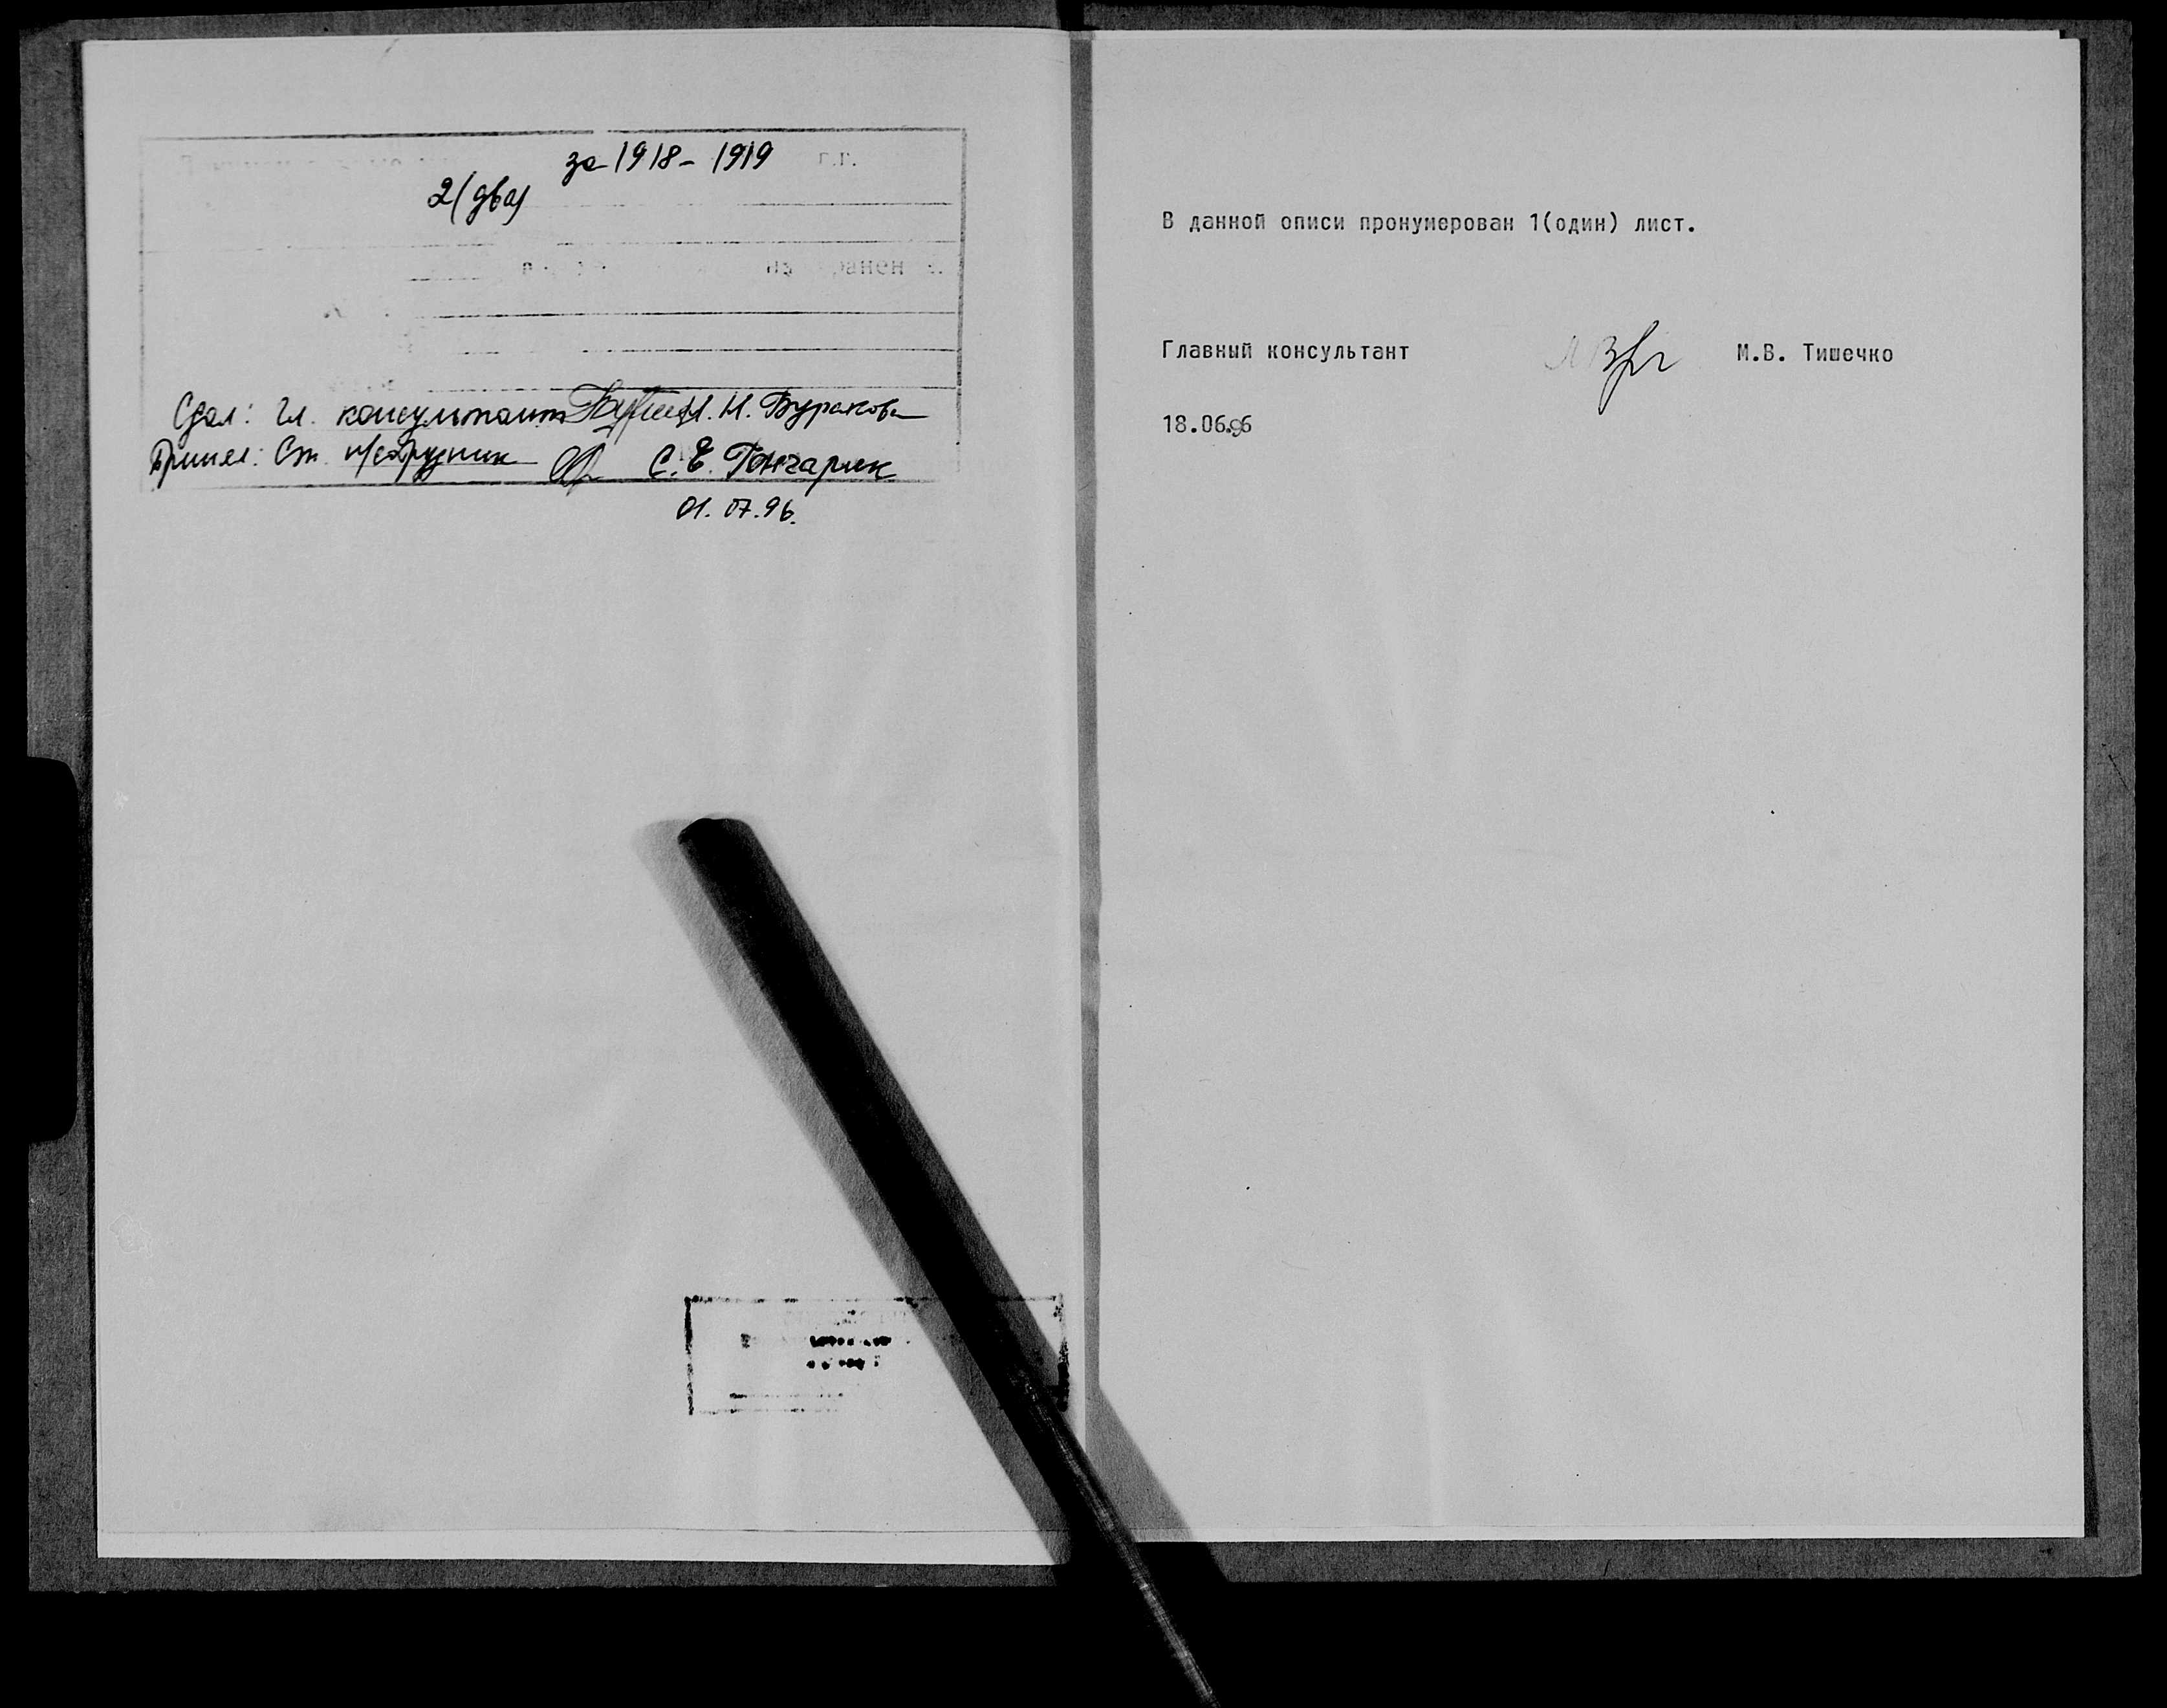 за 1918 - 1919 г.г.
2(два)
Сдал: Гл. консультант Н. Буракова
Принял: Ст. н/сотрудник С. Е. Гончарик
01.07.96.
В данной описи пронумерован 1(один) лист.
Главный консультант М.В. Тишечко
18.06.96